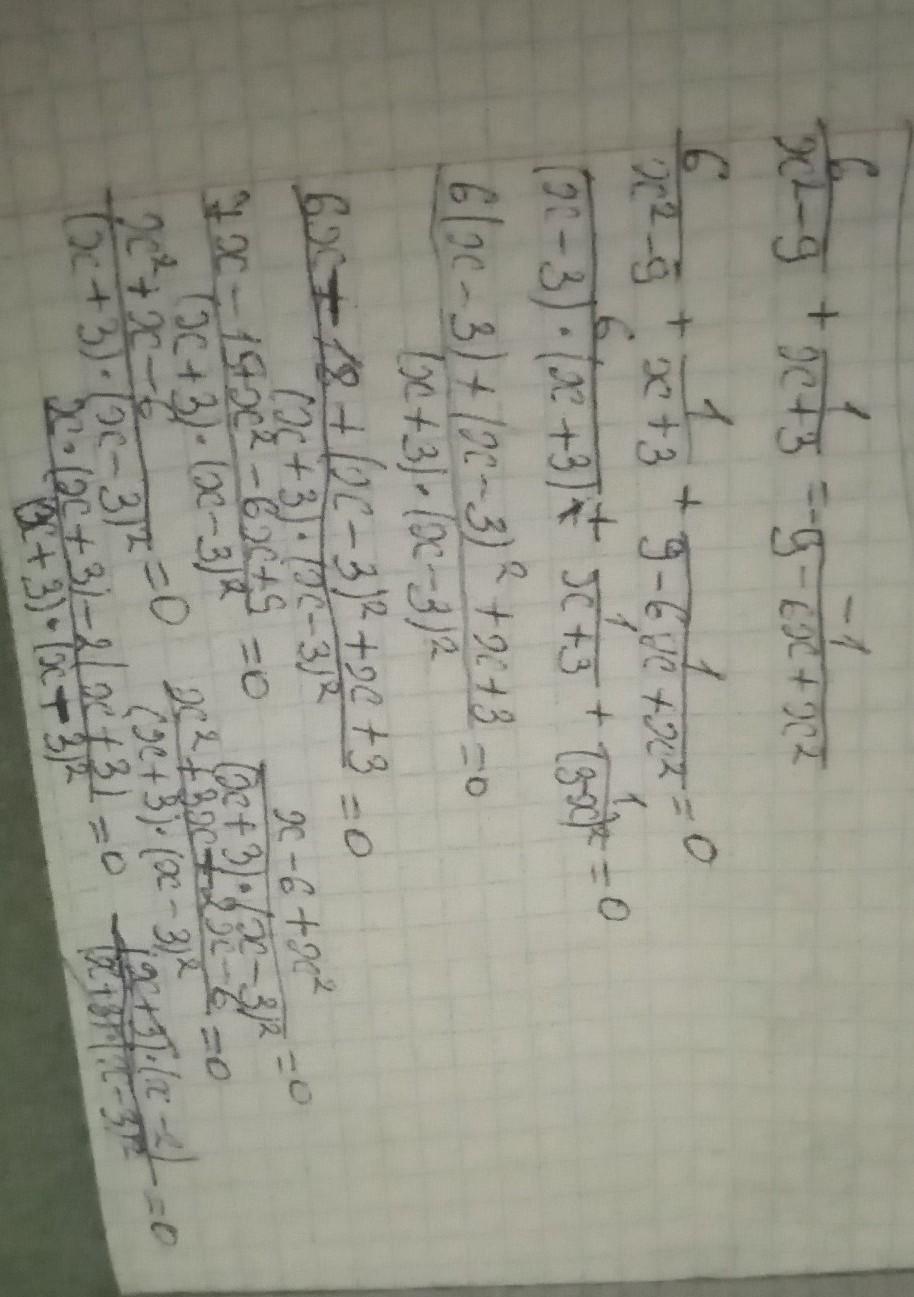 6/(x²-9) + 1/(x+3) = -1/(9-6x+x²)
6/(x²-9) + 1/(x+3) + 1/(9-6x+x²) = 0
6/((x-3)·(x+3)) + 1/(x+3) + 1/(3-x)² = 0
(6(x-3)+(x-3)²+x+3)/((x+3)·(x-3)²) = 0
(6x-18+(x-3)²+x+3)/((x+3)·(x-3)²) = 0
(7x-15+x²-6x+9)/((x+3)·(x-3)²) = 0
(x-6+x²)/((x+3)·(x-3)²) = 0
(x²+x-6)/((x+3)·(x-3)²) = 0
(x²+3x-2x-6)/((x+3)·(x-3)²) = 0
(x·(x+3)-2(x+3))/((x+3)·(x-3)²) = 0
((x+3)·(x-2))/((x+3)·(x-3)²) = 0